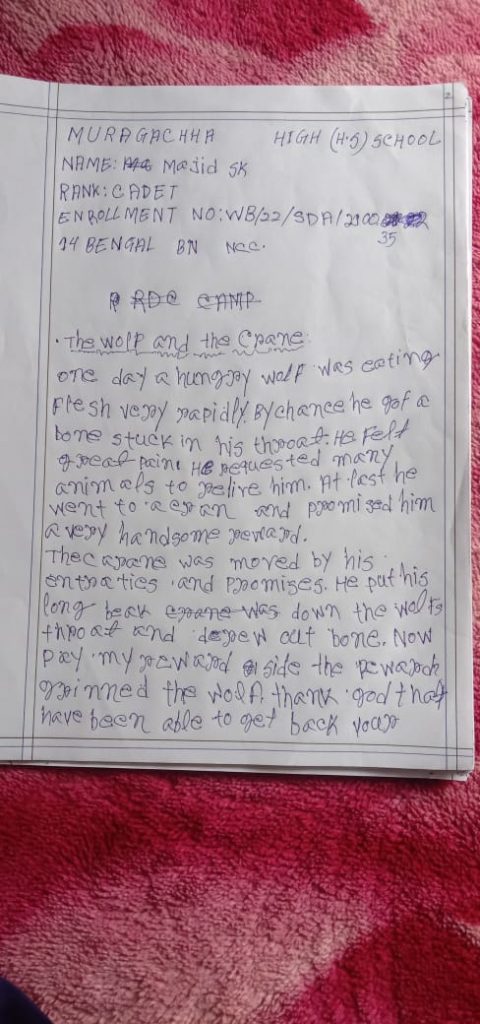 2
MURAGACHHA HIGH (H.S) SCHOOL
NAME: Majid SK
RANK: CADET
ENROLLMENT NO: WB/22/SDA/2100
35
14 BENGAL BN NCC.
RDC CAMP
The wolf and the Crane
one day a hungry wolf was eating
Flesh very rapidly. By chance he got a
bone stuck in his throat. He Felt
great pain. He requested many
animals to relive him. At last he
went to a cran and promised him
a very handsome reward.
The crane was moved by his
entraties and promizes. He put his
long beak crane was down the wolfs
throat and drew out bone. Now
pay my reward side the reward
grinned the wolf. thank god that
have been able to get back your